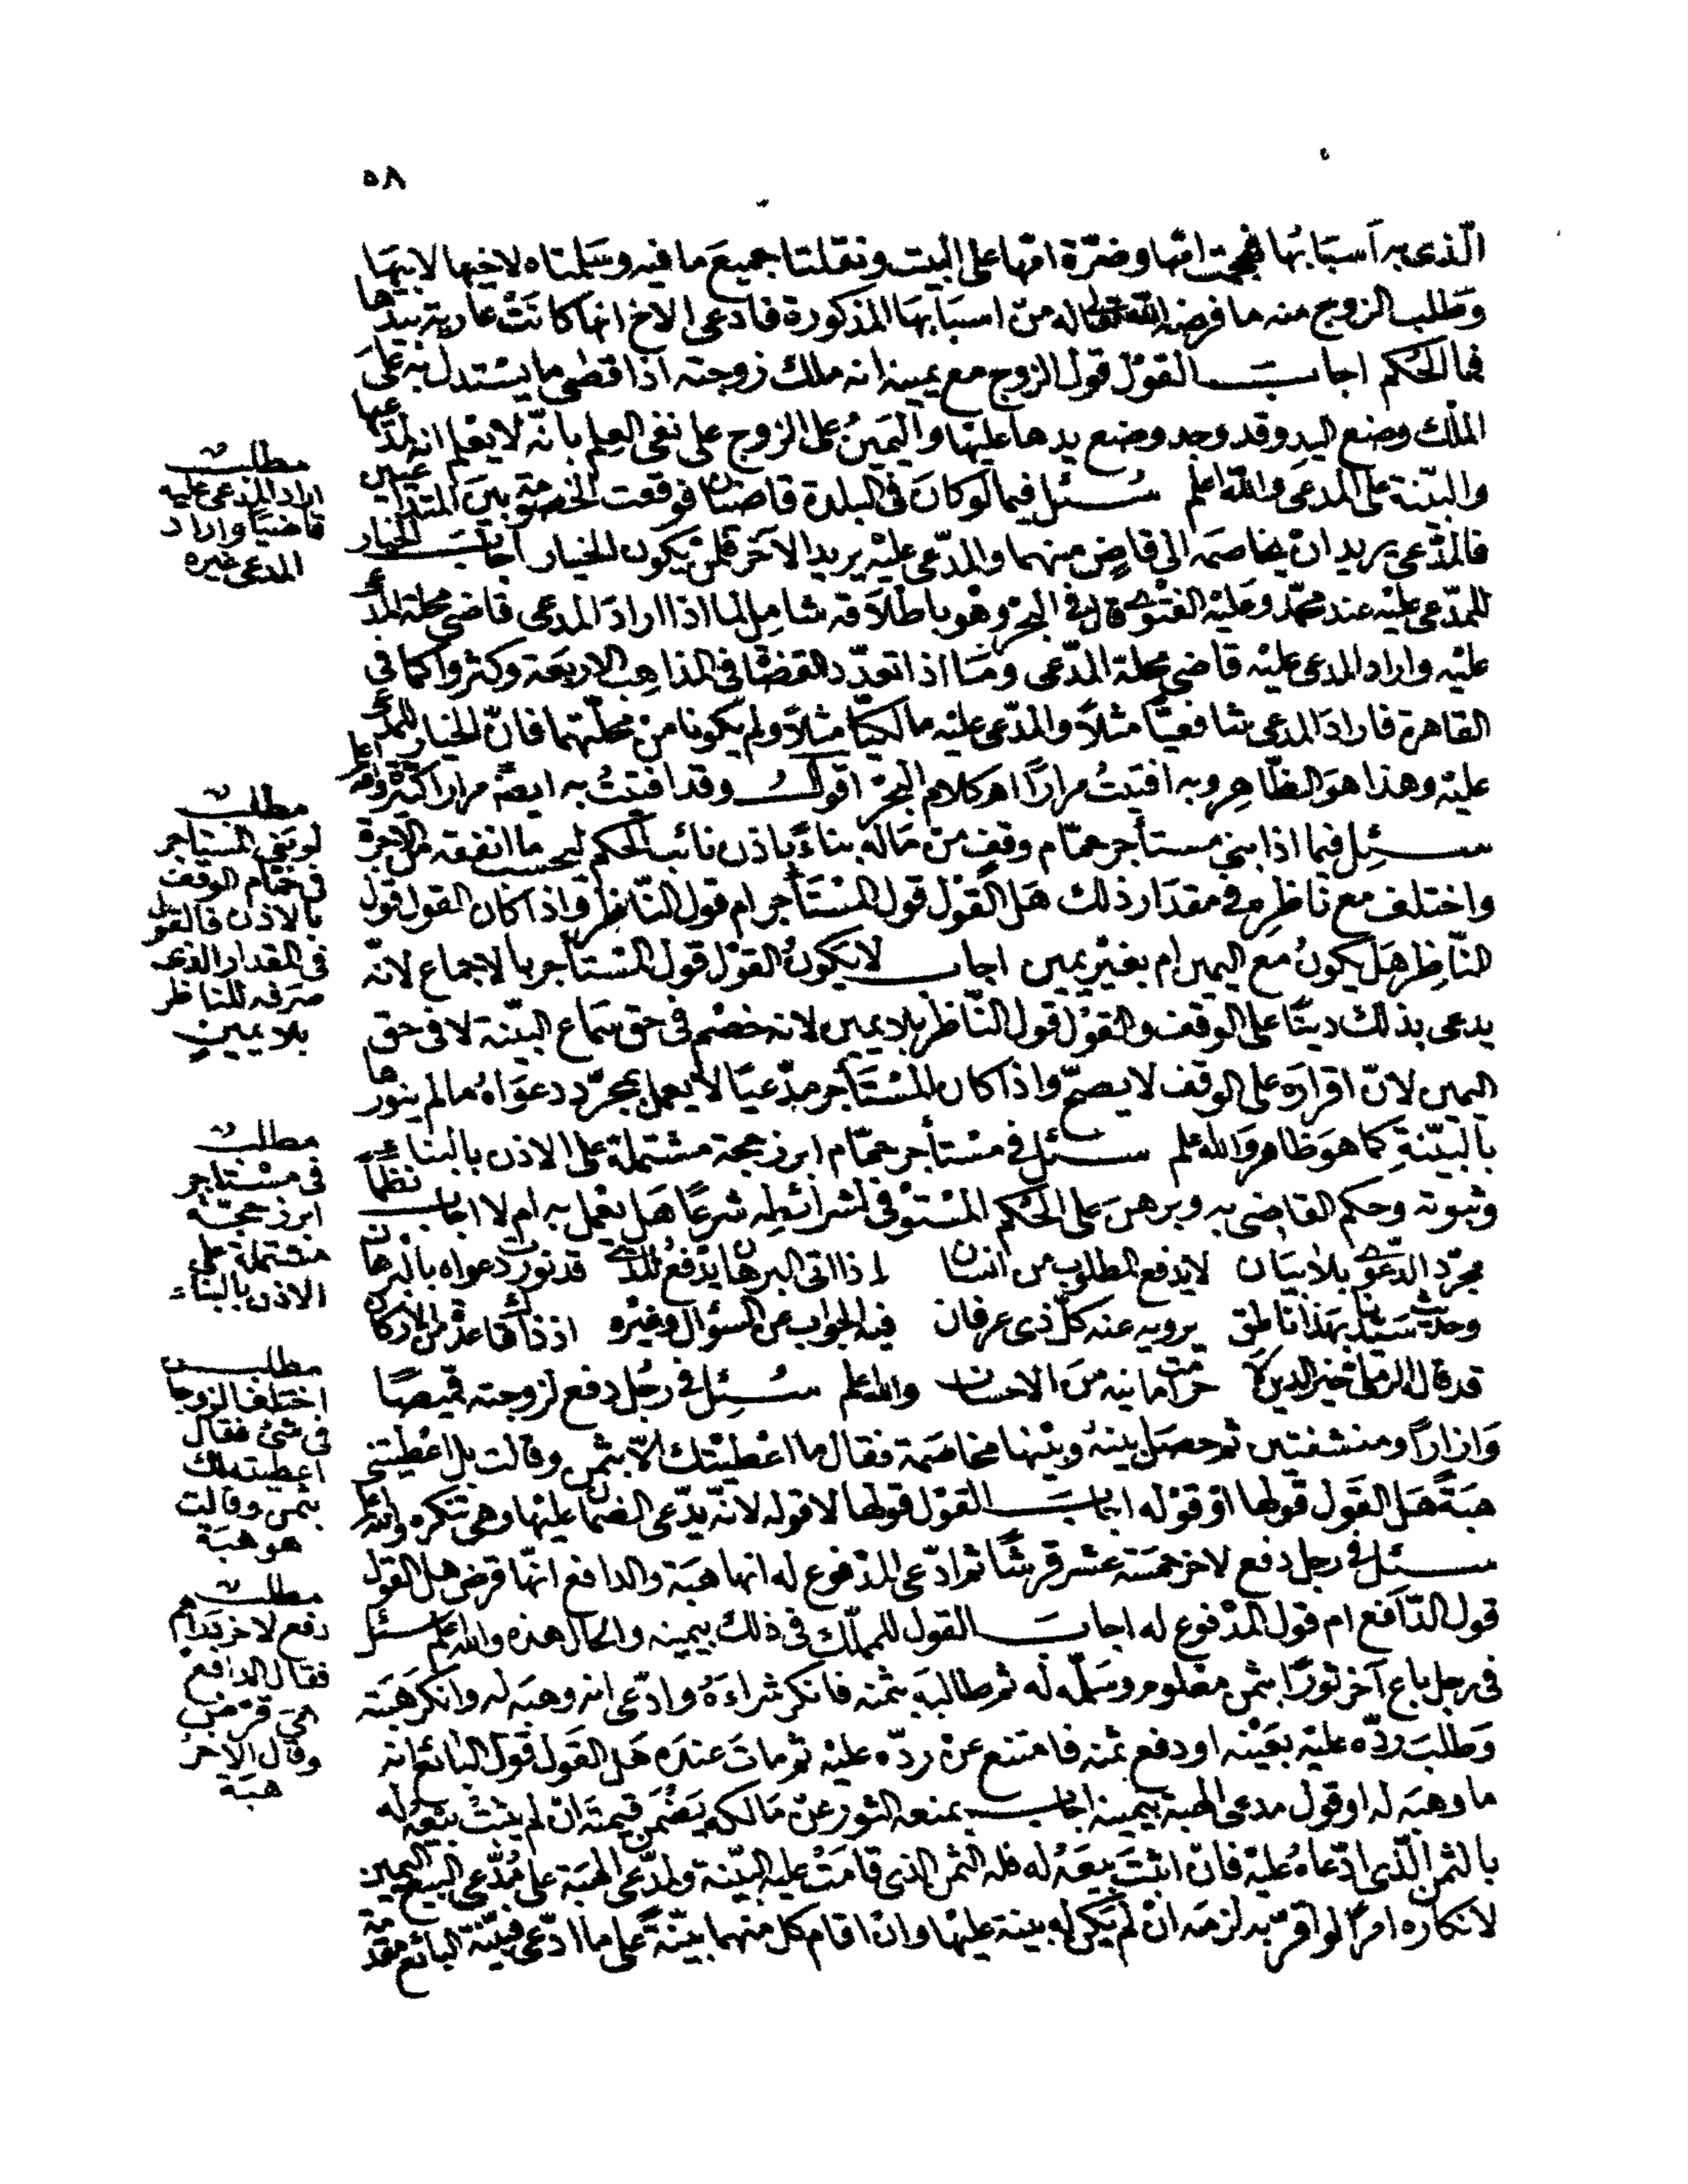 ٥٨
الّذى به اسبابها فهجمت امّها وضرّة امّها على البيت ونقلتا جميع ما فيه وسلمتاه لاخيها لابيها
وطلب الزوج منه ما فرضه الله تعالى له من اسبابها المذكورة فادعى الاخ انها كانت عارية بيدها
فما الحكم اجاب القول قول الزوج مع يمينه انه ملك زوجته اذ اقصى ما يستدل به على
الملك وضع اليد وقد وجد وضع يدها عليها واليمين على الزوج على نفى العلم بانّه لا يعلم انه لمدّعيها
والبيّنة على المدعى والله اعلم سئل فيما لو كان فى البلدة قاضيان فوقعت الخصومة بين المتداعيين
فالمدّعى يريد ان يخاصمه الى قاض منهما والمدّعى عليه يريد الآخر فلمن يكون الخيار اجاب الخيار
للمدّعى عليه عند محمّد وعليه الفتوى قال فى البحر وهو باطلاقه شامل لما اذا اراد المدعى قاضى محلة المدّعى
عليه واراد المدعى عليه قاضى محلة المدّعى وما اذا تعدّد القضاة فى المذاهب الاربعة وكثروا كما فى
القاهرة فاراد المدعى شافعيّا مثلا والمدّعى عليه مالكيّا مثلا ولم يكونا من محلّتهما فانّ الخيار للمدّعى
عليه وهذا هو الظّاهر وبه افتيت مرارا اهـ كلام البحر اقول وقد افتيت به ايضا مرارا كثيرة والله اعلم
سئل فيما اذا بنى مستأجر حمّام وقف من ماله بناءً باذن نائب الحكم ليحسب ما انفقه من الاجرة
واختلف مع ناظره فى مقدار ذلك هل القول قول المستأجر ام قول النّاظر واذا كان القول قول
النّاظر هل يكون مع اليمين ام بغير يمين اجاب لا يكون القول قول المستأجر بالاجماع لانّه
يدعى بذلك دينًا على الوقف والقول قول النّاظر بلا يمين لانه خصم فى حق سماع البيّنة لا فى حق
اليمين لانّ اقراره على الوقف لا يصحّ واذا كان المستأجر مدّعيًا لا يعمل بمجرّد دعواه ما لم ينورها
بالبيّنة كما هو ظاهر والله اعلم سئل فى مستأجر حمّام ابرز حجة مشتملة على الاذن بالبناء
وثبوته وحكم القاضى به وبرهن على الحكم المستوفى لشرائطه شرعًا هل يعمل به ام لا اجاب نظمًا
مجرّد الدّعوى بلا بيان لا يدفع المطلوب من انسان اذا اتى البرهان يدفع للذى قد نورت دعواه بالبرهان
وحديث سيدنا بهذا ناطق يرويه عنه كلّ ذى عرفان فيه الجواب عن السؤال وغيره اذ ذاك قاعدة من الاركان
قد قاله الرملى خير الدين والله اعلم سئل فى رجل دفع لزوجته قميصًا
وازارا ومنشفتين ثم حصل بينه وبينها مخاصمة فقال ما اعطيتك الّا بثمن وقالت بل اعطيتنى
هبةً هل القول قولها او قوله اجاب القول قولها لا قوله لانّه يدّعى الضمان عليها وهى تنكره والله اعلم
سئل فى رجل دفع لاخر خمسة عشر قرشًا ثم ادّعى المدفوع له انها هبة والدافع انّها قرض هل القول
قول الدّافع ام قول المدفوع له اجاب القول للمملّك فى ذلك بيمينه والحال هذه والله اعلم سئل
فى رجل باع آخر ثورًا بثمن معلوم وسلّمه له ثم طالبه بثمنه فانكر شراءه وادّعى انه وهبه له وانكر هبته
وطلب ردّه عليه بعينه او دفع ثمنه فامتنع عن ردّه عليه ثم مات عنده هل القول قول البائع انه
ما وهبه له او قول مدعى الهبة بيمينه اجاب بمنعه الثور عن مالكه يضمن قيمته ان لم يثبت بيعه له
بالثمن الّذى ادّعاه عليه فان اثبت بيعه له فله الثمن الذى قامت عليه البيّنة ولمدّعى الهبة على مدّعى البيع اليمين
لانكاره امرًا لو اقرّ به لزمه ان لم يكن له بينة عليها وان اقام كل منهما بيّنةً على ما ادّعى فبيّنة البائع مقدمة
مطلب
اراد المدعى عليه
قاضيا واراد
المدعى غيره
مطلب
لو بنى المستاجر
فى حمام الوقف
بالاذن فالقول
فى المقدار الذى
صرفه للناظر
بلا يمين
مطلب
فى مستاجر
ابرز حجّة
مشتملة على
الاذن بالبناء
مطلب
اختلف الزوجان
فى شئ فقال
اعطيته لك
بثمن وقالت
هو هبة
مطلب
دفع لاخر دراهم
فقال الدافع
هى قرض
وقال الاخر
هبة